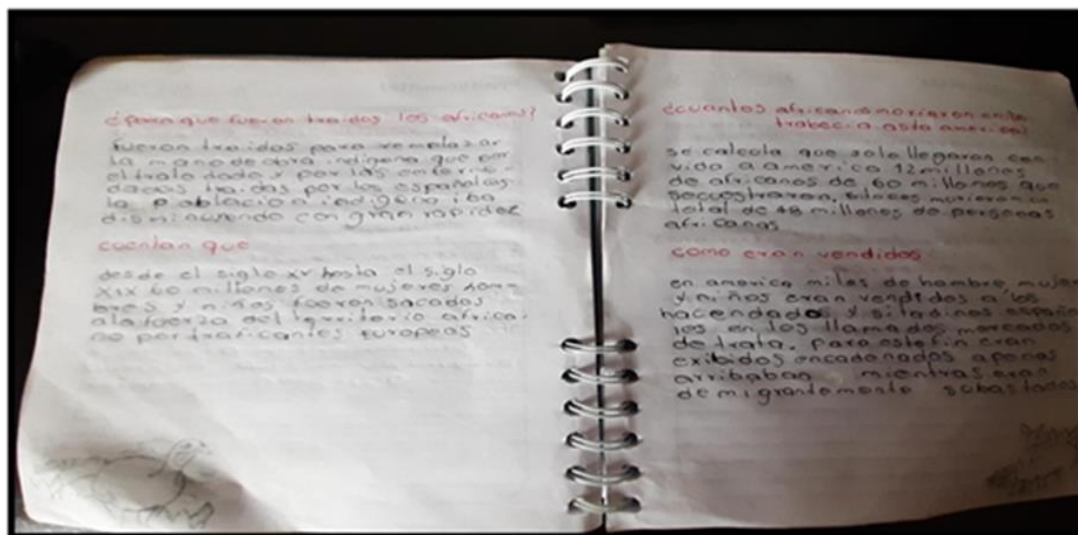 ¿para que fueron traidos los africanos?
fueron traidos para remplazar
la mano de obra indigena que por
el trato dado y por las enferme-
dades traidas por los españoles
la poblacion indigena iba
disminuyendo con gran rapidez
cuentan que
desde el siglo xv hasta el siglo
xix 60 millones de mujeres hom-
bres y niños fueron sacados
ala fuerza del territorio africa-
no por traficantes europeos
¿cuantos africanos morieron en la
trabecia asta america?
se calcula que solo llegaron con
vida a america 12 millones
de africanos de 60 millones que
secuestraron, entonces murieron un
total de 48 millones de personas
africanas
como eran vendidos
en america miles de hombre, mujer
y niños eran vendidos a los
hacendados y españo
les en los llamados mercados
de trata, para este fin eran
exibidos encadenados apenas
arribaban mientras eran
demigrantemente subastados